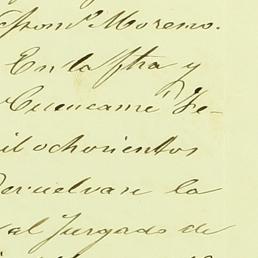 Moreno.
En la ftra y
Cuencamé Fe-
il ochocientos
devuelvase la
al Juzgado de